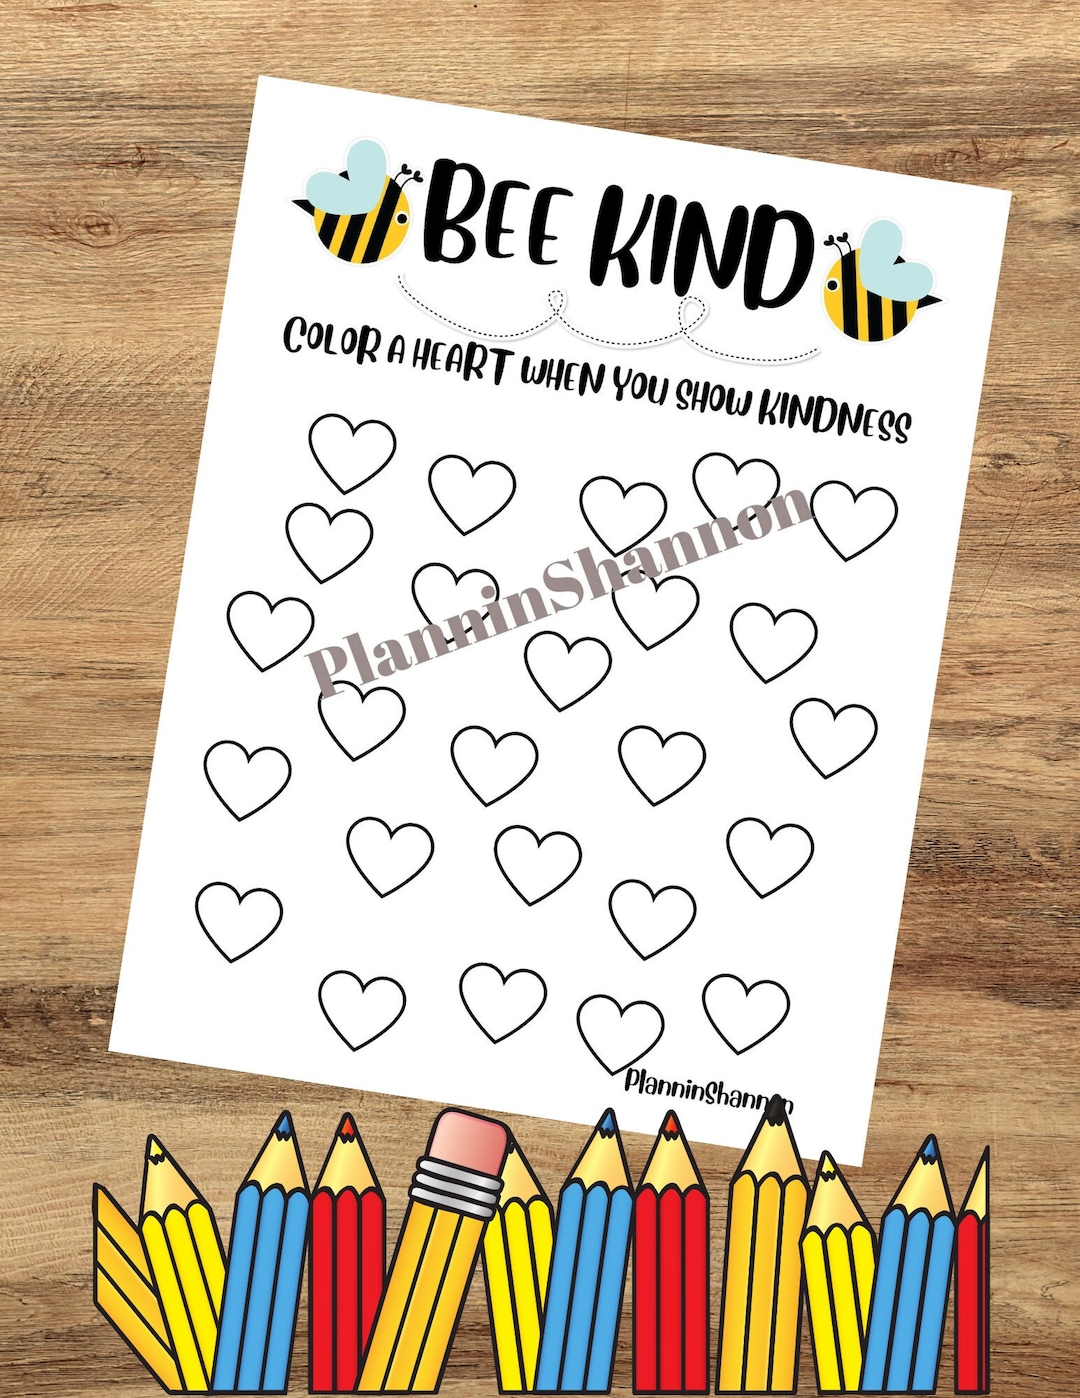 BEE KIND
COLOR A HEART WHEN YOU SHOW KINDNESS
PlanninShannon
PlanninShannon